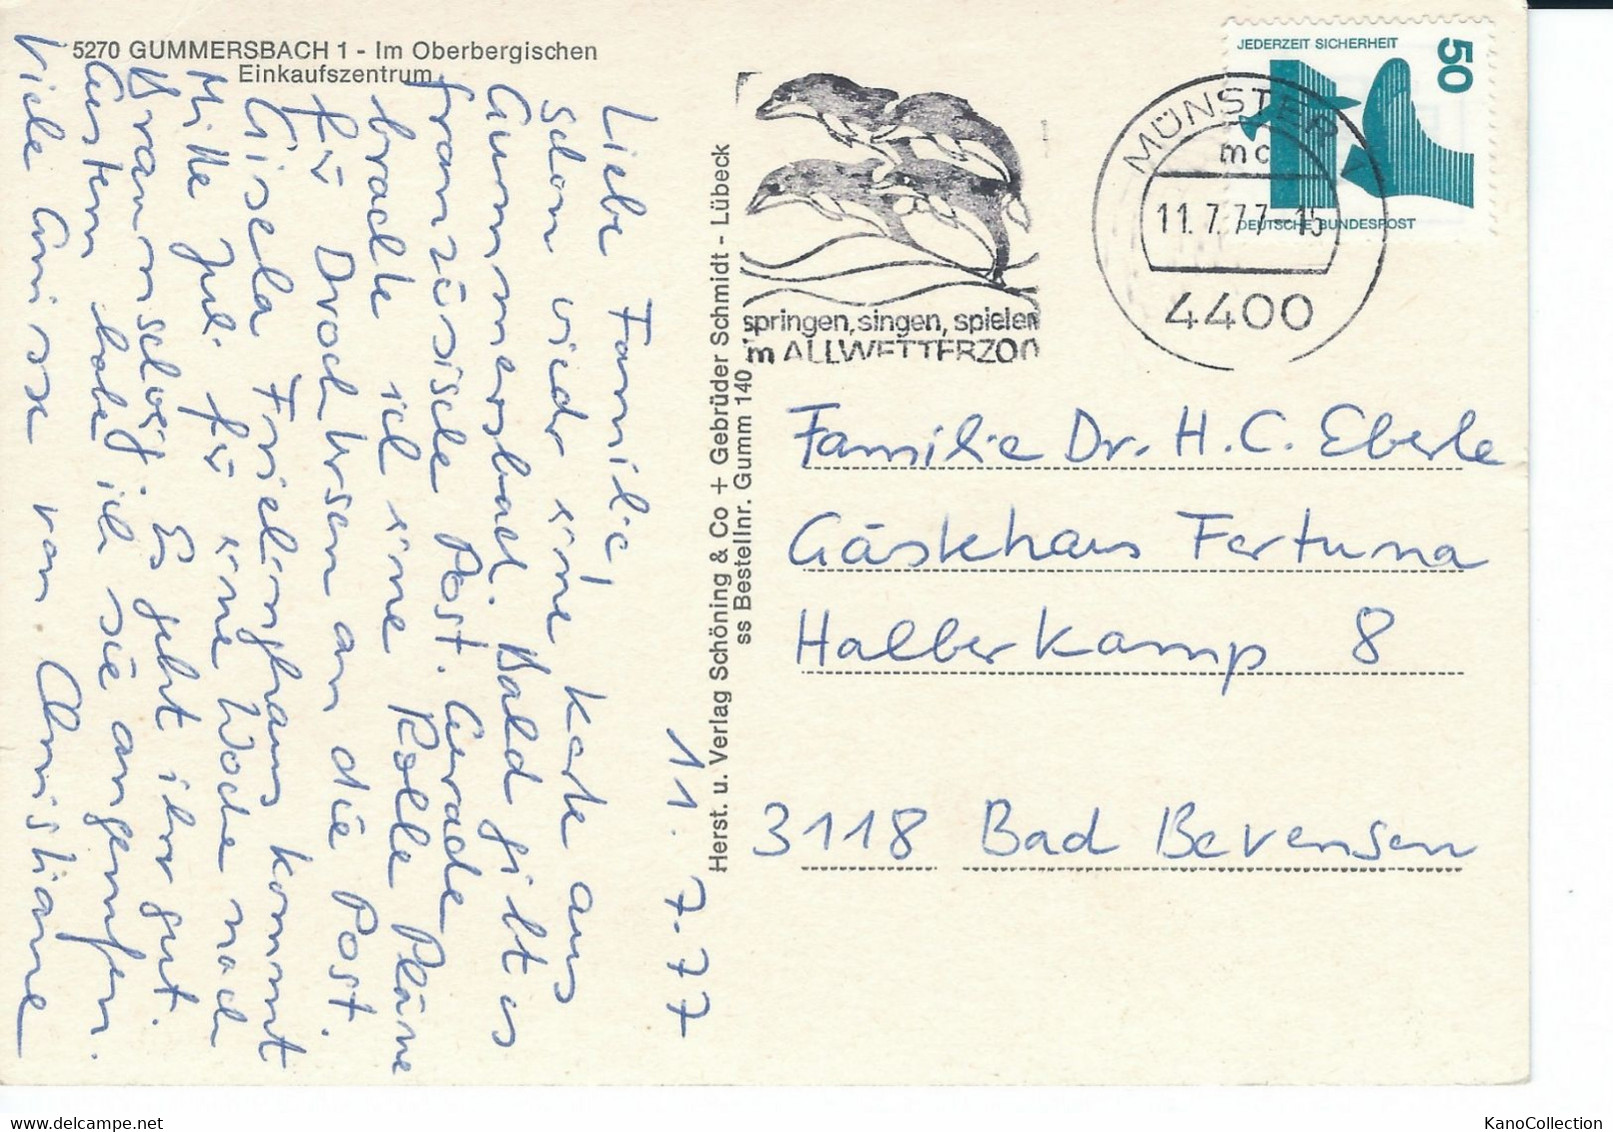 5270 GUMMERSBACH 1 - Im Oberbergischen
Einkaufszentrum
11.7.77
Liebe Familie,
schon wieder eine Karte aus
Gummersbach. Bald gilt es
französische Post. Gerade
brachte ich eine Rolle Pläne
für Drochtersen an die Post.
Gisela Frielinghaus kommt
Mitte Juli für eine Woche nach
Braunschweig. Es geht ihr gut.
Gestern habe ich sie angerufen.
Viele Grüsse von Christiane
Herst. u. Verlag Schöning & Co + Gebrüder Schmidt - Lübeck
ss Bestellnr. Gumm 140
springen, singen, spielen
im ALLWETTERZOO
MÜNSTER
mc
11.7.77-15
4400
JEDERZEIT SICHERHEIT
50
DEUTSCHE BUNDESPOST
Familie Dr. H. C. Eberle
Gästehaus Fortuna
Halberkamp 8
3118 Bad Bevensen
KanoCollection